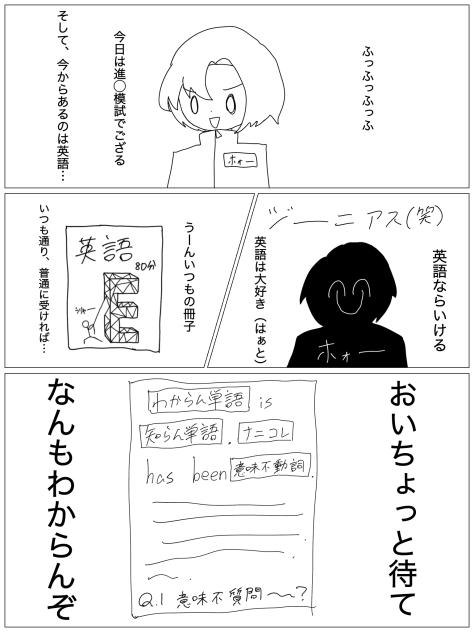 ふっふっふっふ
今日は進◯模試でござる
そして、今からあるのは英語…
ホォー
ジーニアス(笑)
英語ならいける
英語は大好き（はぁと）
ホォー
うーんいつもの冊子
英語
80分
E
いつも通り、普通に受ければ…
おいちょっと待て
わからん単語 is
知らん単語. ナニコレ
has been 意味不動詞.
Q.1 意味不質問〜〜?
なんもわからんぞ